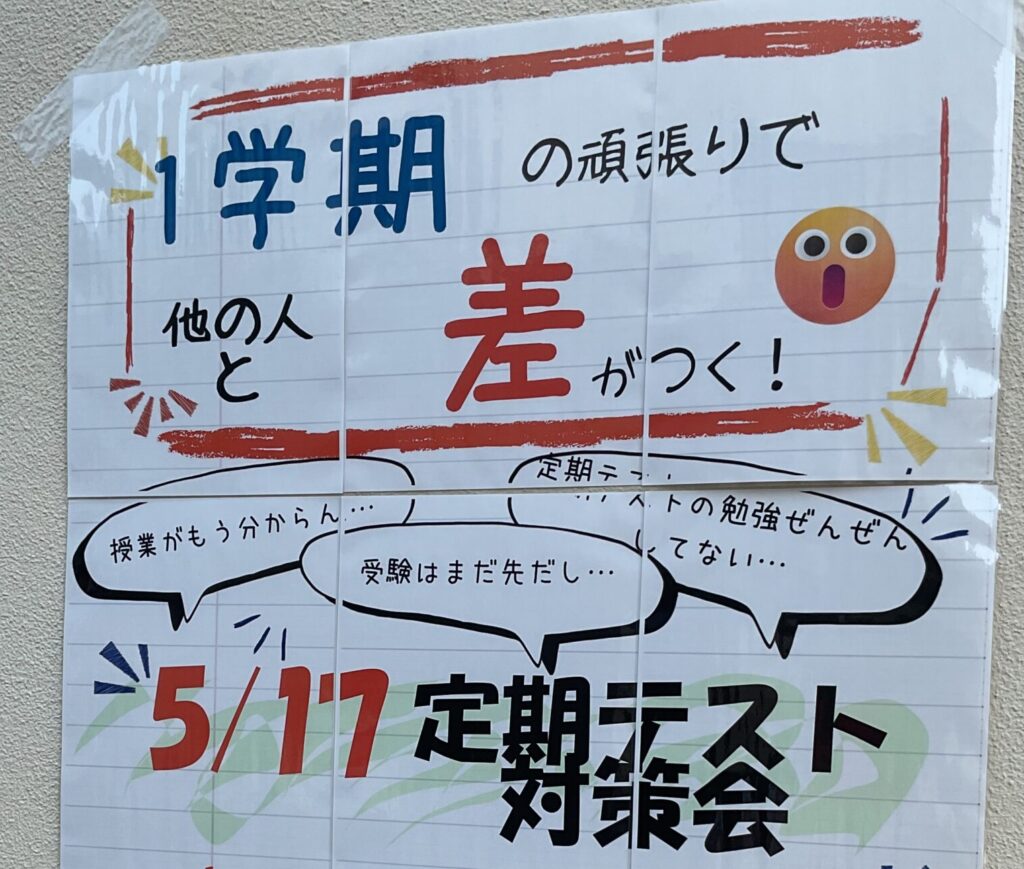 1学期の頑張りで
他の人
と
差がつく!
授業がもう分からん…
受験はまだ先だし…
定期テストの勉強ぜんぜん
してない…
5/17 定期テスト
対策会